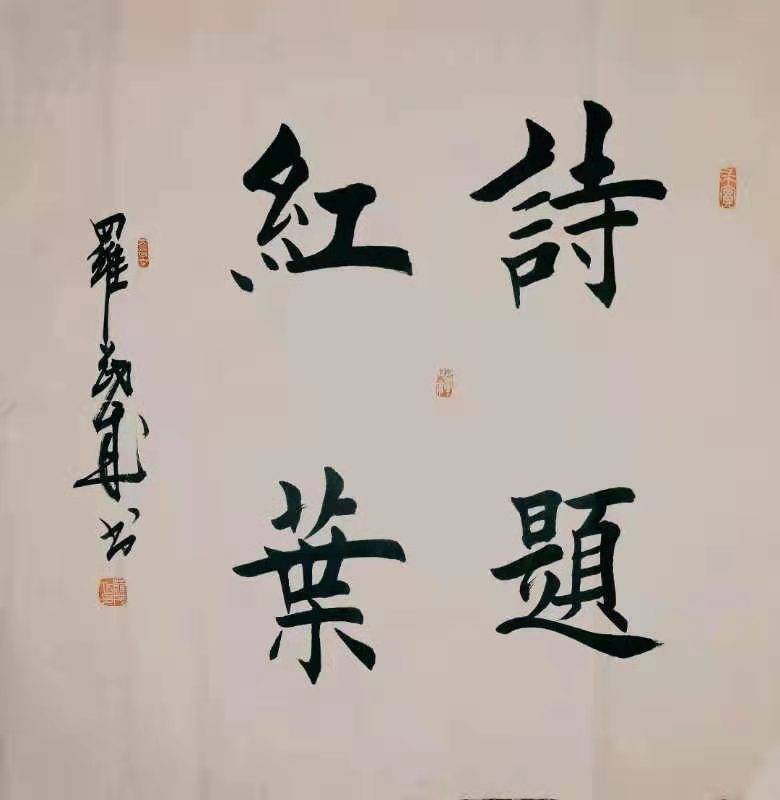 詩題
紅葉
羅
书